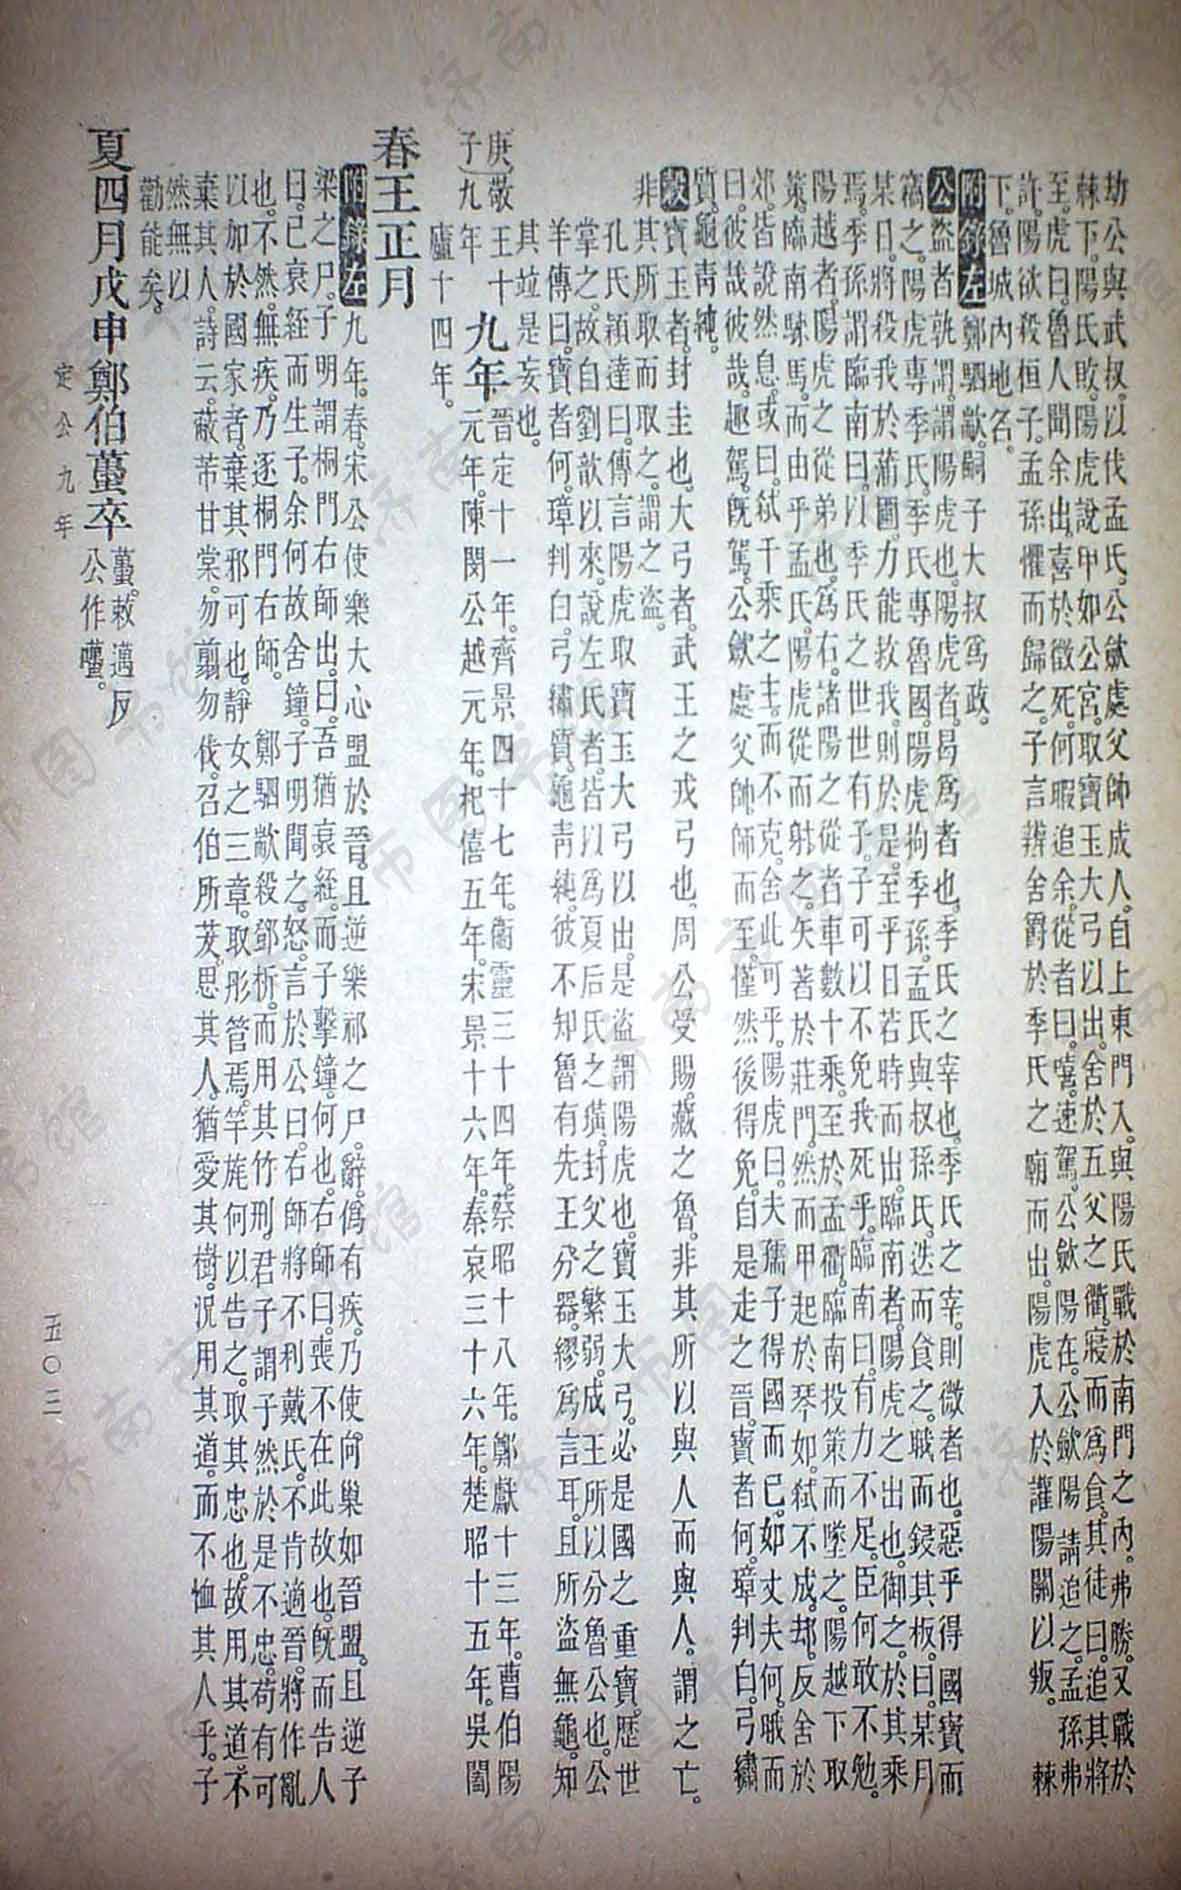 劫公與武叔以伐孟氏。公斂處父帥成人。自上東門入。與陽氏戰於南門之內。弗勝。又戰於
棘下。陽氏敗。陽虎說甲如公宮。取寶玉大弓以出。舍於五父之衢。寢而爲食。其徒曰。追其將
至。虎曰。魯人聞余出。喜於徵死。何暇追余。從者曰。嘻。速駕。公斂陽在。公斂陽請追之。孟孫弗
許。陽欲殺桓子。孟孫懼而歸之。子言辨舍爵於季氏之廟而出。陽虎入於讙陽關以叛。棘
下。魯城內地名。
附錄左鄭駟歂。嗣子大叔爲政。
公盜者孰謂。謂陽虎也。陽虎者。曷爲者也。季氏之宰也。季氏之宰。則微者也。惡乎得國寶而
竊之。陽虎專季氏。季氏專魯國。陽虎拘季孫。孟氏與叔孫氏。迭而食之。睋而鋟其板。曰。某月
某日。將殺我於蒲圃。力能救我。則於是。至乎日若時而出。臨南者。陽虎之出也。御之。於其乘
焉。季孫謂臨南曰。以季氏之世世有子。子可以不免我死乎。臨南曰。有力不足。臣何敢不勉。
陽越者。陽虎之從弟也。爲右。諸陽之從者。車數十乘。至於孟衢。臨南投策而墜之。陽越下取
策。臨南駷馬。而由乎孟氏。陽虎從而射之。矢著於莊門。然而甲起於琴如。弒不成。却反舍於
郊。皆說然息。或曰。弒千乘之主。而不克。舍此可乎。陽虎曰。夫孺子得國而已。如丈夫何。睋而
曰。彼哉彼哉。趣駕。旣駕。公斂處父帥師而至。慬然後得免。自是走之晉。寶者何。璋判白。弓繡
質。龜靑純。
穀寶玉者。封圭也。大弓者。武王之戎弓也。周公受賜。藏之魯。非其所以與人而與人。謂之亡。
非其所取而取之。謂之盜。
孔氏穎達曰。傳言陽虎取寶玉大弓以出。是盜謂陽虎也。寶玉大弓。必是國之重寶。歷世
掌之。故自劉歆以來。說左氏者。皆以爲夏后氏之璜。封父之繁弱。成王所以分魯公也。公
羊傳曰。寶者何。璋判白。弓繡質。龜靑純。彼不知魯有先王分器。繆爲言耳。且所盜無龜。知
其竝是妄也。
庚子敬王十九年 九年 晉定十一年。齊景四十七年。衞靈三十四年。蔡昭十八年。鄭獻十三年。曹伯陽
元年。陳閔公越元年。杞僖五年。宋景十六年。秦哀三十六年。楚昭十五年。吳闔
廬十四年。
春王正月
附錄左九年。春。宋公使樂大心盟於晉。且逆樂祁之尸。辭。僞有疾。乃使向巢如晉盟。且逆子
梁之尸。子明謂桐門右師出。曰。吾猶衰絰。而子擊鐘。何也。右師曰。喪不在此故也。旣而告人
曰。已衰絰而生子。余何故舍鐘。子明聞之。怒。言於公曰。右師將不利戴氏。不肯適晉。將作亂
也。不然。無疾。乃逐桐門右師。 鄭駟歂殺鄧析。而用其竹刑。君子謂子然於是不忠。苟有可
以加於國家者。棄其邪可也。靜女之三章。取彤管焉。竿旄何以告之。取其忠也。故用其道。不
棄其人。詩云。蔽芾甘棠。勿翦勿伐。召伯所茇。思其人。猶愛其樹。況用其道。而不恤其人乎。子
然無以
勸能矣。
夏四月戊申鄭伯蠆卒 蠆。敕邁反
公作囆。
定公九年
五〇三